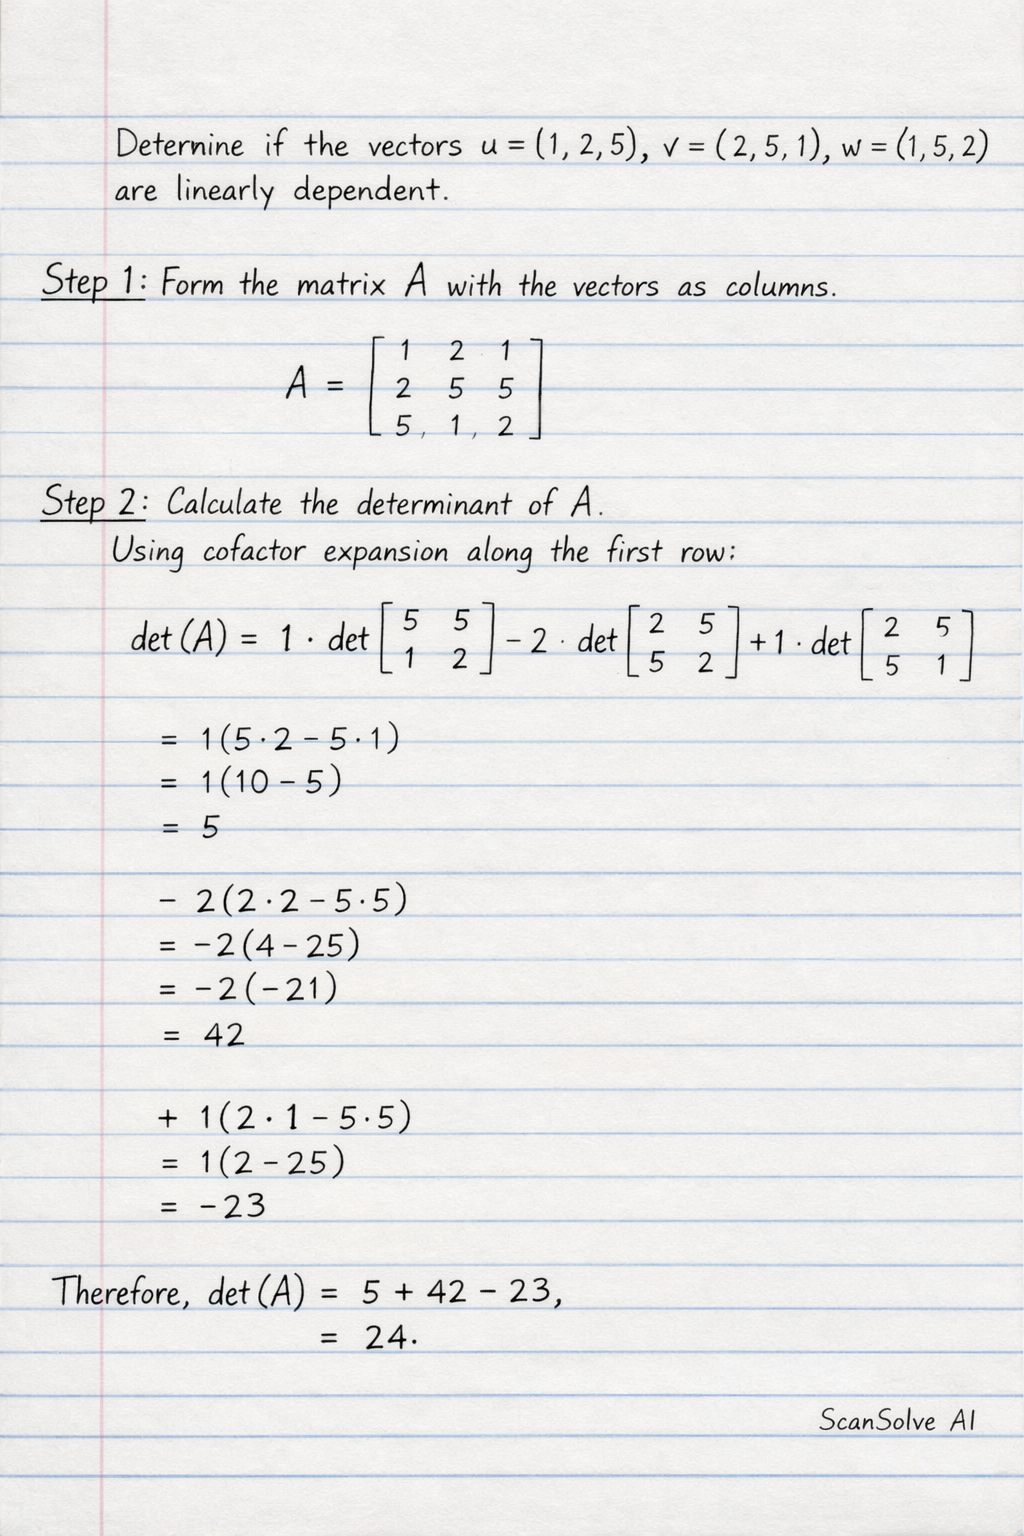 Deternine if the vectors u = (1, 2, 5), v = (2, 5, 1), w = (1, 5, 2)
are linearly dependent.
Step 1: Form the matrix A with the vectors as columns.
A = [ 1 2 1
2 5 5
5, 1, 2 ]
Step 2: Calculate the determinant of A.
Using cofactor expansion along the first row:
det (A) = 1 · det [ 5 5 ; 1 2 ] − 2 · det [ 2 5 ; 5 2 ] + 1 · det [ 2 5 ; 5 1 ]
= 1(5·2 − 5·1)
= 1(10 − 5)
= 5
− 2(2·2 − 5·5)
= −2(4 − 25)
= −2(−21)
= 42
+ 1(2·1 − 5·5)
= 1(2 − 25)
= −23
Therefore, det (A) = 5 + 42 − 23,
= 24.
ScanSolve AI